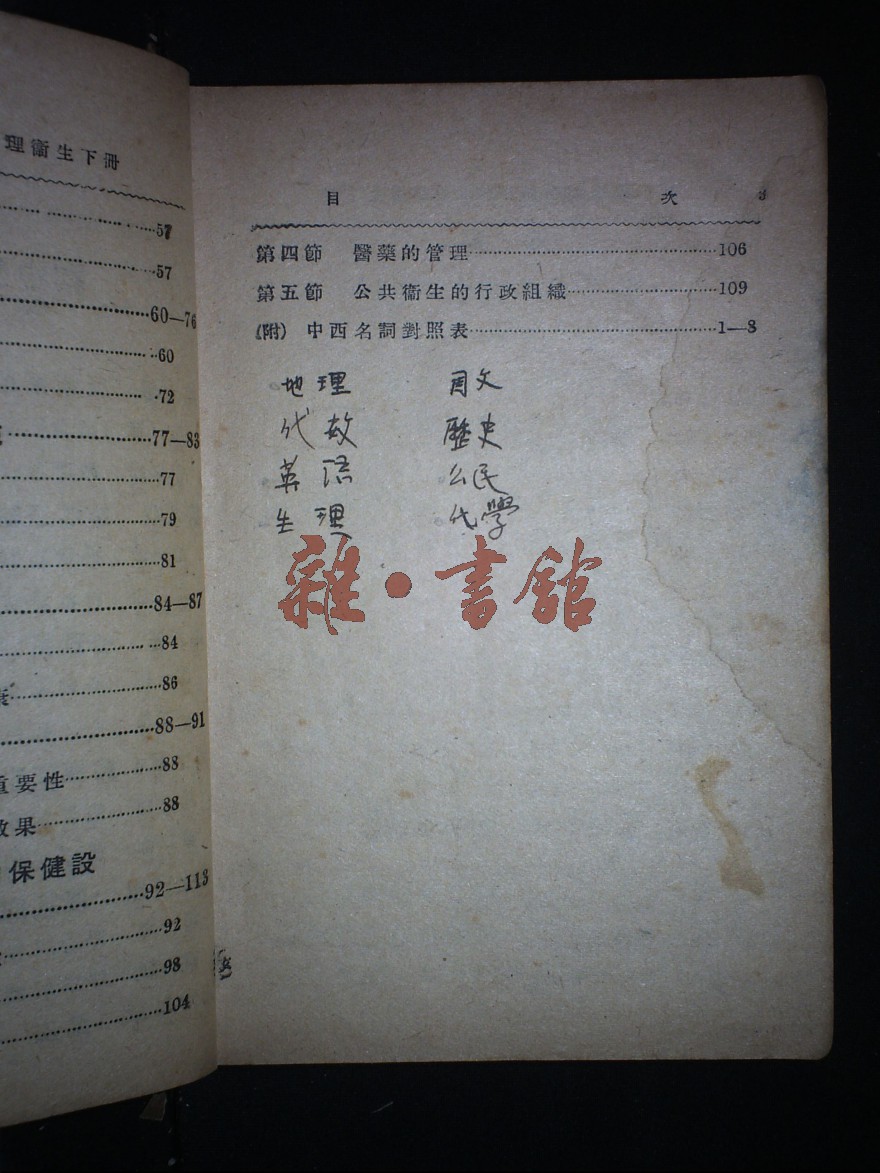 理衞生下冊
57
57
60—76
60
72
77—83
77
79
81
84—87
84
86
88—91
重要性 88
效果 88
保健設
92—113
92
98
104
目 次 3
第四節 醫藥的管理 106
第五節 公共衞生的行政組織 109
(附) 中西名詞對照表 1—8
地理 国文
代数 歷史
英语 公民
生理 化學
雜·書館